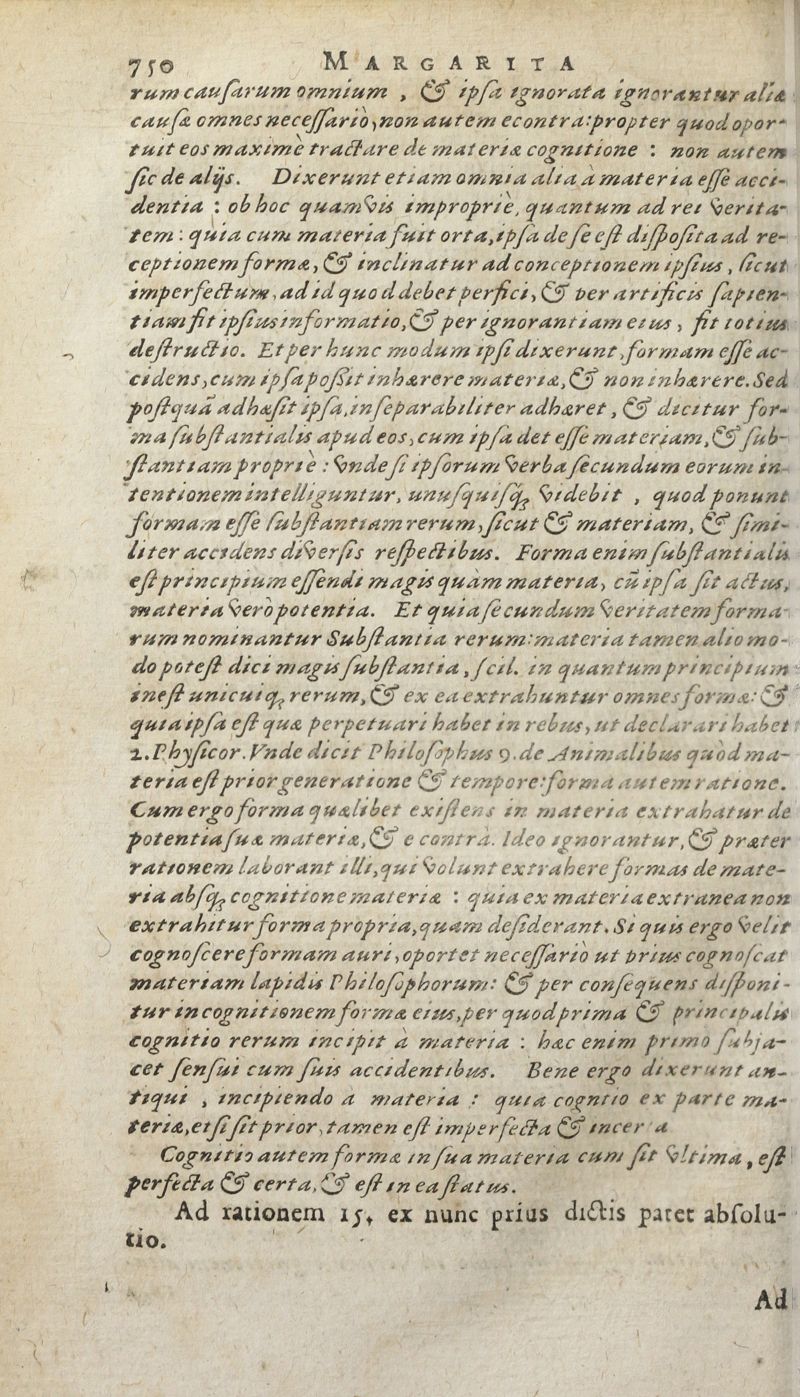 750 MARGARITA
rum cauſarum omnium , & ipſa ignorata ignorantur aliæ
cauſæ omnes neceſſariò, non autem econtra: propter quod opor-
tuit eos maximè tractare de materiæ cognitione : non autem
ſic de alijs. Dixerunt etiam omnia alia à materia eſſe acci-
dentia : ob hoc quamvis impropriè, quantum ad rei verita-
tem : quia cum materia fuit orta, ipſa de ſe eſt diſpoſita ad re-
ceptionem formæ, & inclinatur ad conceptionem ipſius, ſicut
imperfectum, ad id quod debet perfici, & per artificis ſapien-
tiam fit ipſius informatio, & per ignorantiam eius, fit totius
deſtructio. Et per hunc modum ipſi dixerunt, formam eſſe ac-
cidens, cum ipſa poßit inhærere materiæ, & non inhærere. Sed
poſtquã adhæſit ipſa, inſeparabiliter adhæret, & dicitur for-
ma ſubſtantialis apud eos, cum ipſa det eſſe materiam, & ſub-
ſtantiam propriè : vnde ſi ipſorum verba ſecundum eorum in-
tentionem intelliguntur, unuſquiſq; videbit , quod ponunt
formam eſſe ſubſtantiam rerum, ſicut & materiam, & ſimi-
liter accidens diverſis reſpectibus. Forma enim ſubſtantialis
eſt principium eſſendi magis quàm materia, cũ ipſa ſit actus,
materia verò potentia. Et quia ſecundum veritatem forma-
rum nominantur Subſtantia rerum: materia tamen alio mo-
do poteſt dici magis ſubſtantia, ſcil. in quantum principium
ineſt unicuiq; rerum, & ex ea extrahuntur omnes formæ: &
quia ipſa eſt quæ perpetuari habet in rebus, ut declarari habet
2. Phyſicor. Vnde dicit Philoſophus 9. de Animalibus quòd ma-
teria eſt prior generatione & tempore: forma autem ratione.
Cum ergo forma quælibet exiſtens in materia extrahatur de
potentia ſuæ materiæ, & e contrà. Ideo ignorantur, & præter
rationem laborant illi, qui volunt extrahere formas de mate-
ria abſq; cognitione materiæ : quia ex materia extranea non
extrahitur forma propria, quam deſiderant. Si quis ergo velit
cognoſcere formam auri, oportet neceſſariò ut prius cognoſcat
materiam lapidis Philoſophorum: & per conſequens diſponi-
tur in cognitionem formæ eius, per quod prima & principalis
cognitio rerum incipit à materia : hæc enim primo ſubja-
cet ſenſui cum ſuis accidentibus. Bene ergo dixerunt an-
tiqui , incipiendo à materia : quia cognitio ex parte ma-
teriæ, etſi ſit prior, tamen eſt imperfecta & incerta
Cognitio autem formæ in ſua materia cum ſit vltima, eſt
perfecta & certa, & eſt in ea ſtatus.
Ad rationem 15, ex nunc prius dictis patet abſolu-
tio.
Ad